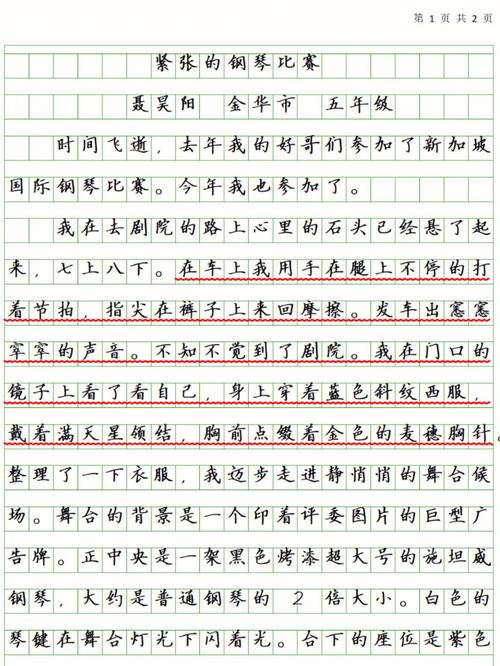 第 1 页 共 2 页
紧张的钢琴比赛
聂昊阳 金华市 五年级
时间飞逝，去年我的好哥们参加了新加坡
国际钢琴比赛。今年我也参加了。
我在去剧院的路上心里的石头已经悬了起
来，七上八下。在车上我用手在腿上不停的打
着节拍，指尖在裤子上来回摩擦。发车出窸窸
窣窣的声音。不知不觉到了剧院。我在门口的
镜子上看了看自己，身上穿着蓝色斜纹西服，
戴着满天星领结，胸前点缀着金色的麦穗胸针。
整理了一下衣服，我迈步走进静悄悄的舞台候
场。舞台的背景是一个印着评委图片的巨型广
告牌。正中央是一架黑色烤漆超大号的施坦威
钢琴，大约是普通钢琴的 2 倍大小。白色的
琴键在舞台灯光下闪着光。台下的座位是紫色